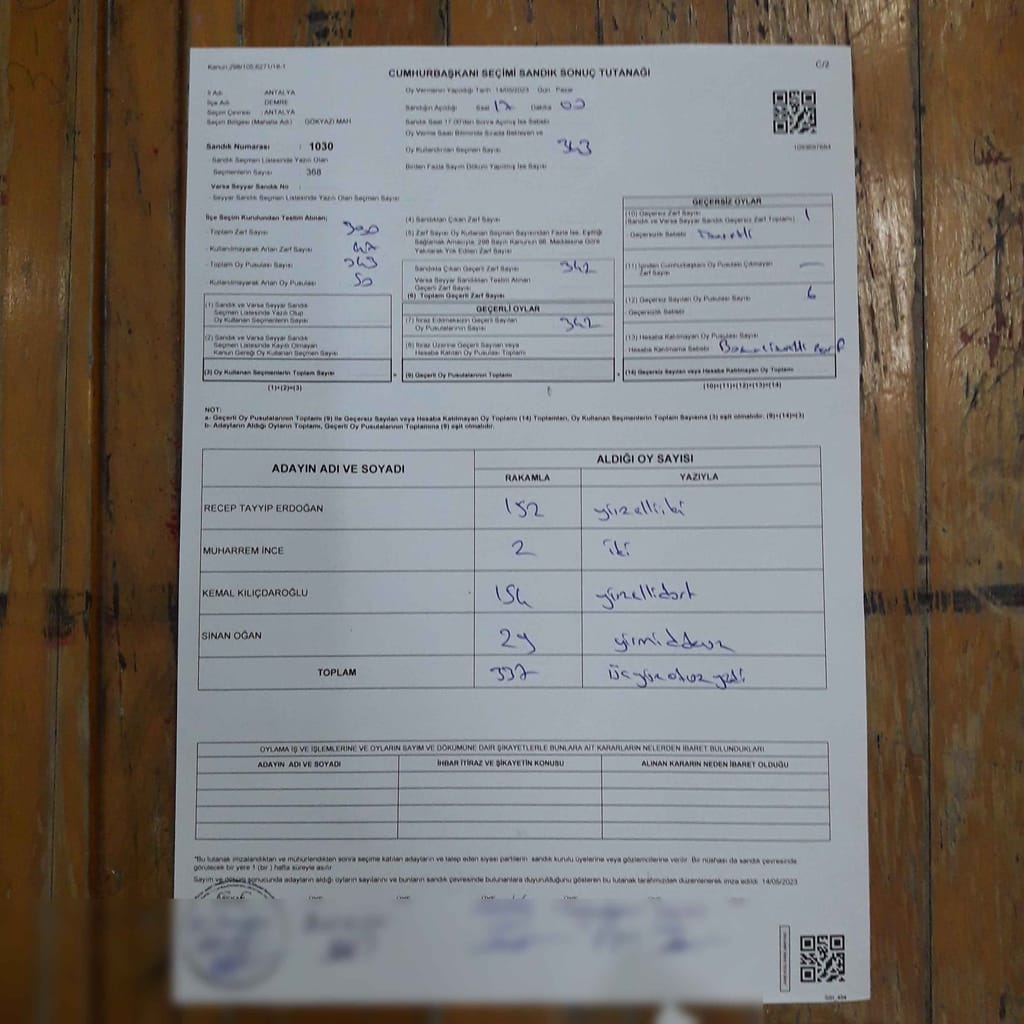 Kanun:298/105,6271/18-1
C/2
CUMHURBAŞKANI SEÇİMİ SANDIK SONUÇ TUTANAĞI
İl Adı : ANTALYA
İlçe Adı : DEMRE
Seçim Çevresi : ANTALYA
Seçim Bölgesi (Mahalle Adı) : GÖKYAZI MAH
Oy Vermenin Yapıldığı Tarih 14/05/2023 Gün Pazar
Sandığın Açıldığı Saat 17 Dakika 00
Sandık Saat 17.00'den Sonra Açılmış İse Sebebi
Oy Verme Saati Bitiminde Sırada Bekleyen ve
Oy Kullandırılan Seçmen Sayısı 343
Birden Fazla Sayım Döküm Yapılmış İse Sayısı
Sandık Numarası : 1030
- Sandık Seçmen Listesinde Yazılı Olan
Seçmenlerin Sayısı 368
Varsa Seyyar Sandık No :
- Seyyar Sandık Seçmen Listesinde Yazılı Olan Seçmen Sayısı
İlçe Seçim Kurulundan Teslim Alınan;
- Toplam Zarf Sayısı 390
- Kullanılmayarak Artan Zarf Sayısı 47
- Toplam Oy Pusulası Sayısı
- Kullanılmayarak Artan Oy Pusulası 50
(1) Sandık ve Varsa Seyyar Sandık
Seçmen Listesinde Yazılı Olup
Oy Kullanan Seçmenlerin Sayısı
(2) Sandık ve Varsa Seyyar Sandık
Seçmen Listesinde Kayıtlı Olmayan
Kanun Gereği Oy Kullanan Seçmen Sayısı
(3) Oy Kullanan Seçmenlerin Toplam Sayısı
(1)+(2)=(3)
(4) Sandıktan Çıkan Zarf Sayısı
(5) Zarf Sayısı Oy Kullanan Seçmen Sayısından Fazla İse, Eşitliği
Sağlamak Amacıyla, 298 Sayılı Kanunun 98. Maddesine Göre
Yakılarak Yok Edilen Zarf Sayısı
Sandıkta Çıkan Geçerli Zarf Sayısı 342
Varsa Seyyar Sandıktan Teslim Alınan
Geçerli Zarf Sayısı
(6) Toplam Geçerli Zarf Sayısı
GEÇERLİ OYLAR
(7) İtiraz Edilmeksizin Geçerli Sayılan
Oy Pusulalarının Sayısı 342
(8) İtiraz Üzerine Geçerli Sayılan veya
Hesaba Katılan Oy Pusulası Toplamı
(9) Geçerli Oy Pusulalarının Toplamı
GEÇERSİZ OYLAR
(10) Geçersiz Zarf Sayısı 1
(Sandık ve Varsa Seyyar Sandık Geçersiz Zarf Toplamı)
- Geçersizlik Sebebi
(11) İçinden Cumhurbaşkanı Oy Pusulası Çıkmayan
Zarf Sayısı —
(12) Geçersiz Sayılan Oy Pusulası Sayısı 6
- Geçersizlik Sebebi
(13) Hesaba Katılmayan Oy Pusulası Sayısı
Hesaba Katılmama Sebebi
(14) Geçersiz Sayılan veya Hesaba Katılmayan Oy Toplamı
(10)+(11)+(12)+(13)=(14)
NOT:
a- Geçerli Oy Pusulalarının Toplamı (9) ile Geçersiz Sayılan veya Hesaba Katılmayan Oy Toplamı (14) Toplamları, Oy Kullanan Seçmenlerin Toplam Sayısına (3) eşit olmalıdır. (9)+(14)=(3)
b- Adayların Aldığı Oyların Toplamı, Geçerli Oy Pusulalarının Toplamına (9) eşit olmalıdır.
ADAYIN ADI VE SOYADI
ALDIĞI OY SAYISI
RAKAMLA YAZIYLA
RECEP TAYYİP ERDOĞAN 152 yüzelliiki
MUHARREM İNCE 2 iki
KEMAL KILIÇDAROĞLU 154 yüzellidört
SİNAN OĞAN 29 yirmidokuz
TOPLAM 337 üçyüzotuzyedi
OYLAMA İŞ VE İŞLEMLERİNE VE OYLARIN SAYIM VE DÖKÜMÜNE DAİR ŞİKAYETLERLE BUNLARA AİT KARARLARIN NELERDEN İBARET BULUNDUKLARI
ADAYIN ADI VE SOYADI İHBAR İTİRAZ VE ŞİKAYETİN KONUSU ALINAN KARARIN NEDEN İBARET OLDUĞU
*Bu tutanak imzalandıktan ve mühürlendikten sonra seçime katılan adayların ve talep eden siyasi partilerin sandık kurulu üyelerine veya gözlemcilerine verilir. Bir nüshası da sandık çevresinde
görülecek bir yere 1 (bir) hafta süreyle asılır.
Sayım ve döküm sonucunda adayların aldığı oyların sayılarını ve bunların sandık çevresinde bulunanlara duyurulduğunu gösteren bu tutanak tarafımızdan düzenlenerek imza edildi. 14/05/2023